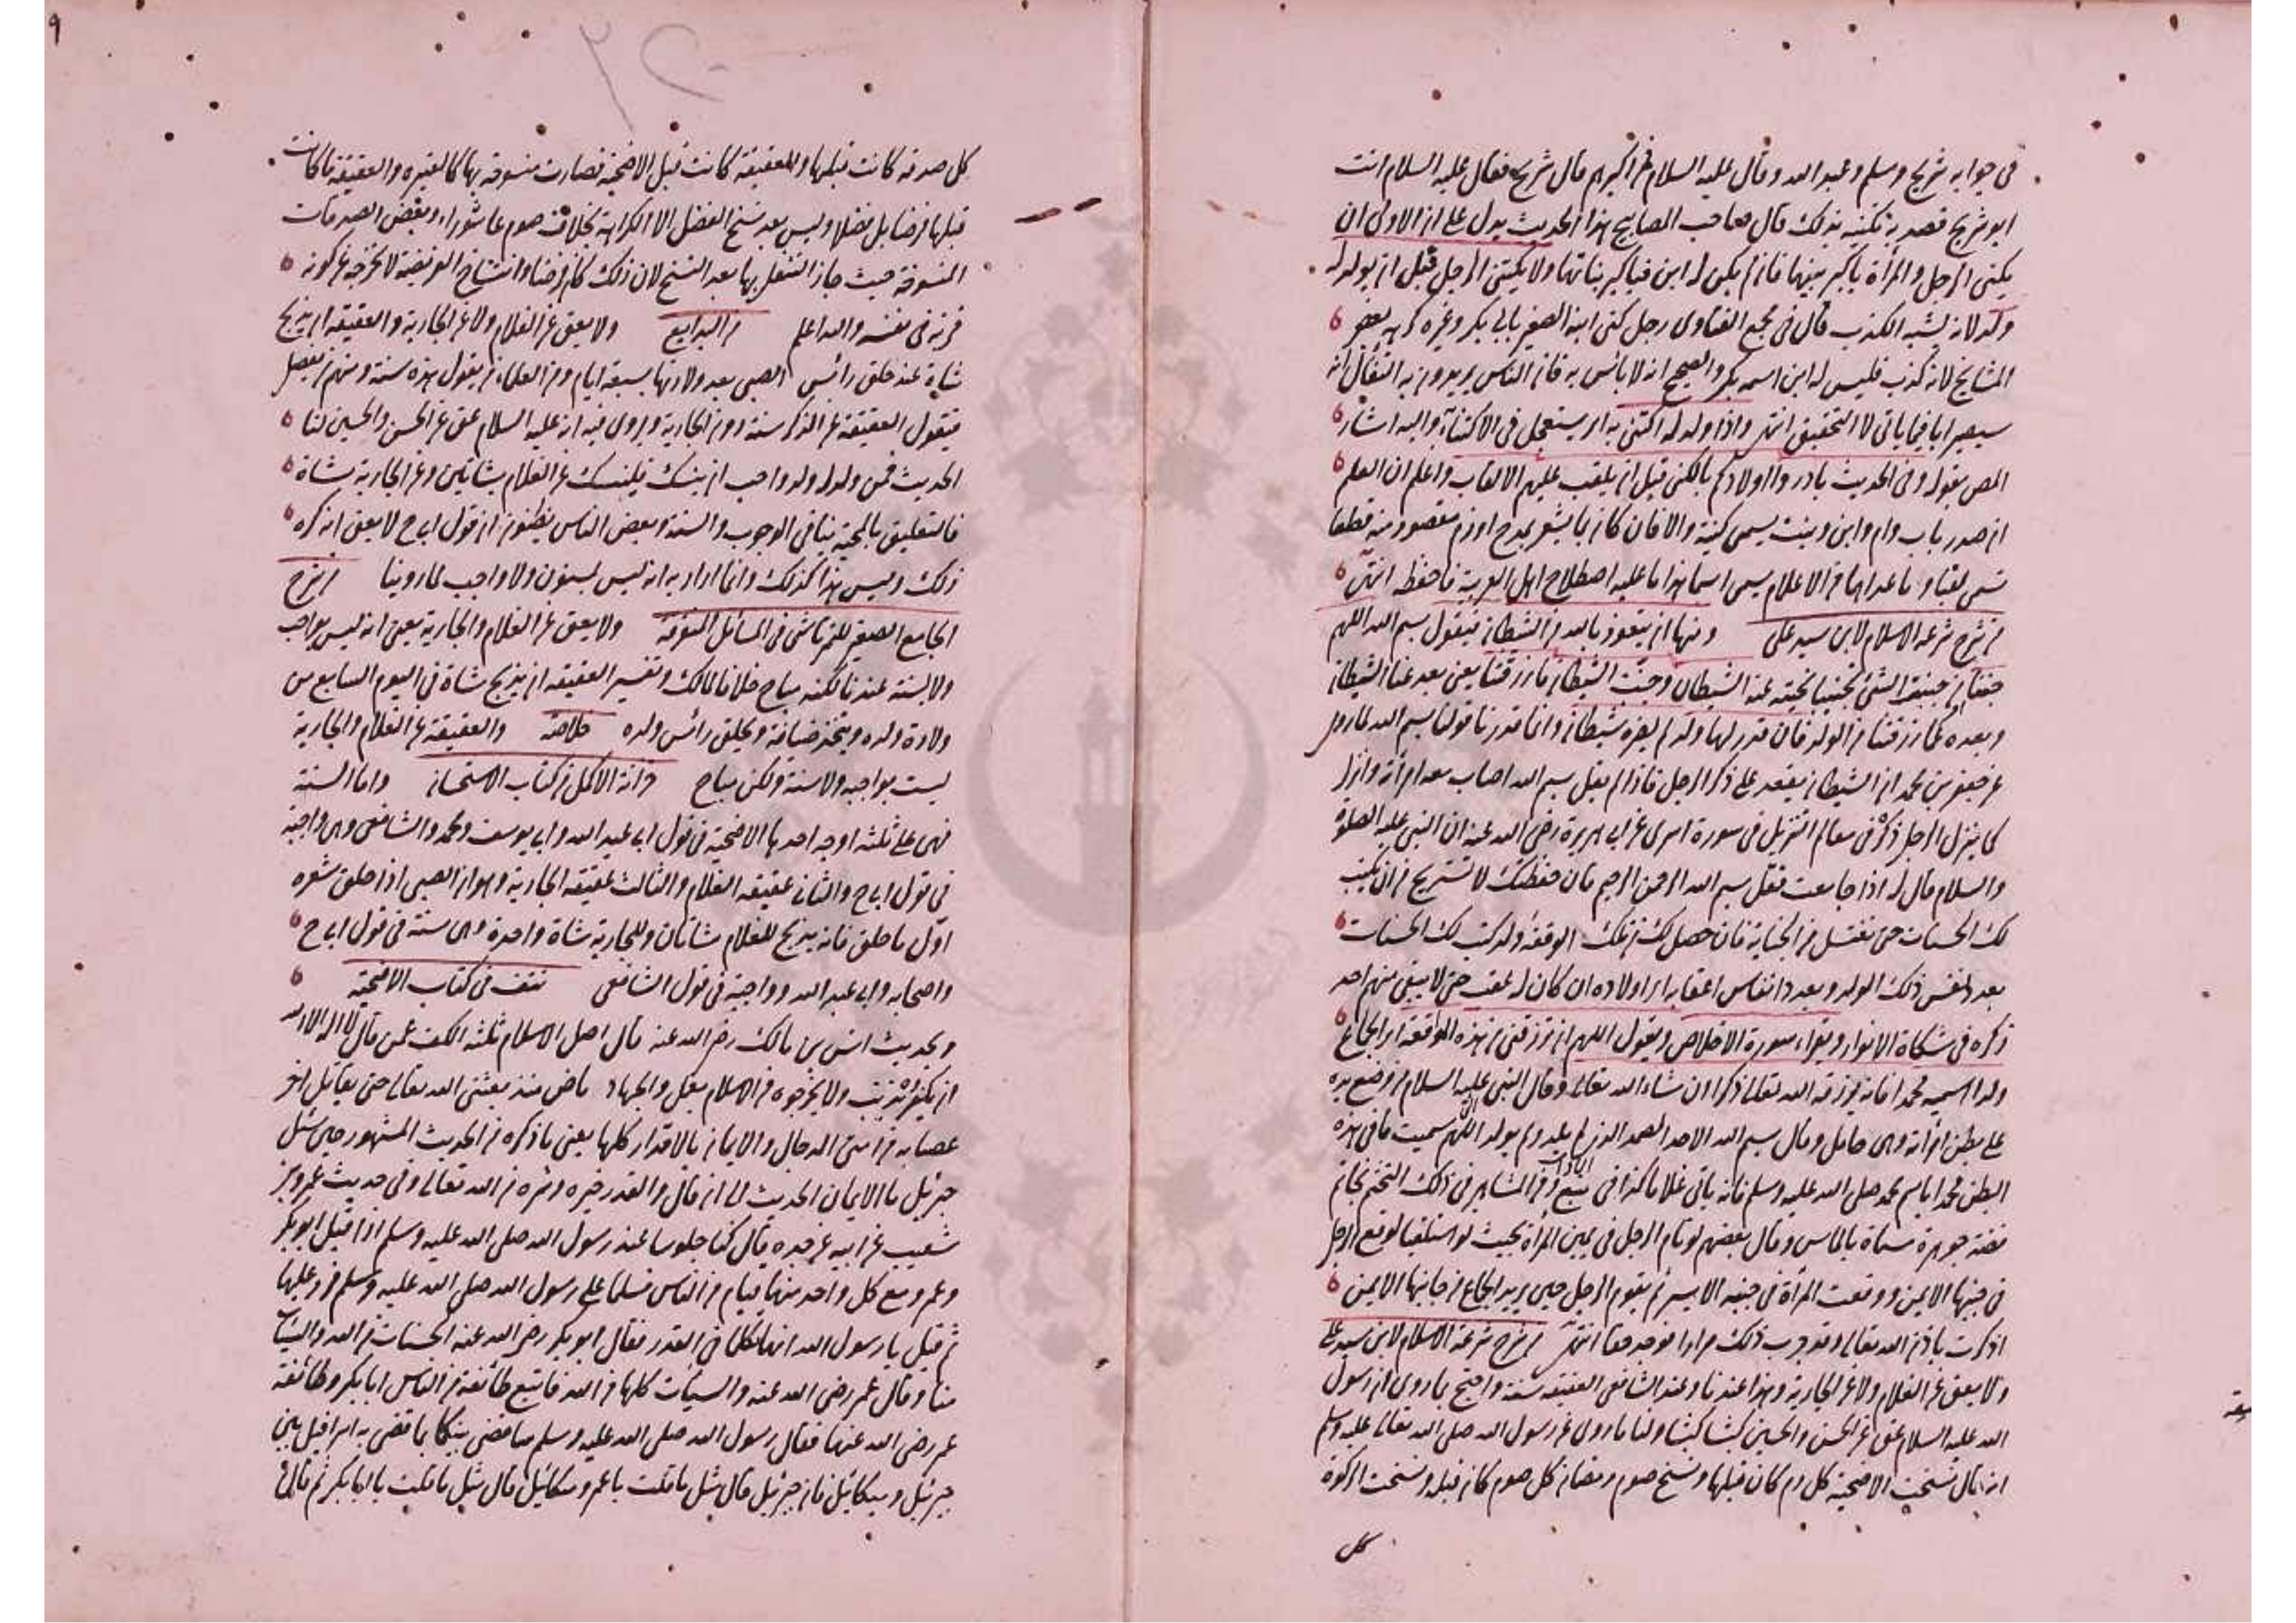 في جوابه شريح ومسلم وعبد الله وقال عليه السلام فمن اكبرهم قال شريح فقال عليه السلام انت
ابو شريح فصدر به تكنيته بذلك قال صاحب المصابيح هذا الحديث يدل على ان الاولى ان
يكنى الرجل والمرأة باكبر بنيهما فان لم يكن له ابن فباكبر بناتهما ولا يكتنى الرجل قبل ان يولد له
ولد لانه يشبه الكذب قال في مجمع الفتاوى رجل كنى ابنه الصغير بابى بكر وغيره كرهه بعض
المشايخ لانه كذب فليس له ابن اسمه بكر والصحيح انه لا بأس به فان الناس يريدون به التفاؤل انه
سيصير ابا فيما يأتى لا التحقيق انتهى واذا ولد له اكتنى به اى يستعجل في الاكتناء واليه اشار
المص بقوله وفى الحديث بادروا اولادكم بالكنى قبل ان يلقب عليهم الالقاب واعلم ان العلم
ان صدر باب وام وابن وبنت يسمى كنية والا فان كان مما يشعر بمدح او ذم مقصود منه قطعا
تسمى لقبا وما عداهما من الاعلام يسمى اسما هذا ما عليه اصطلاح اهل العربية فاحفظه انتهى
من شرح شرعة الاسلام لابن سيد على ومنها ان يتعوذ بالله من الشيطان فيقول بسم الله اللهم
جنبنا من جنبته الشئ تجنيبا نحيته عنه الشيطان وجنب الشيطان ما رزقتنا يعنى بعد عنا الشيطان
وبعده عما رزقتنا من الولد فان قدر لهما ولد لم يضره شيطان وانما قدرنا قولنا بسم الله لما روى
عن جعفر بن محمد ان الشيطان يقعد على ذكر الرجل فاذا لم يقل بسم الله اصاب معه امرأته وانزل
كما ينزل الرجل ذكره في معالم التنزيل في سورة اسرى عن ابى هريرة رضى الله عنه ان النبى عليه الصلوة
والسلام قال له اذا جامعت فقل بسم الله الرحمن الرحيم فان حفظتك لا تستريح من ان تكتب
لك الحسنات حتى تغتسل من الجنابة فان حصل لك من تلك الوقعة ولد كتب لك الحسنات
بعدد نفس ذلك الولد وبعدد انفاس اعقابه اى اولاده ان كان له عقب حتى لا يبقى منهم احد
ذكره في مشكاة الانوار ويقراء سورة الاخلاص ويقول اللهم ان ترزقنى من هذه الوقعة اى الجماع
ولدا اسميه محمدا فانه يرزقه الله تعالى ذكرا ان شاء الله تعالى وقال النبى عليه السلام من وضع يده
على بطن امرأته وهى حامل وقال بسم الله الاحد الصمد الذى لم يلد ولم يولد اللهم سميت ما في هذه
البطن محمدا باسم محمد صلى الله عليه وسلم فانه يأتى غلاما كذا في ومن المشاهير في ذلك التختم بخاتم
فضة جوهرة مسماة بالماس وقال بعضهم لو نام الرجل في يمين المرأة بحيث لو استلقيا لوقع الرجل
في جنبها الايمن ووقعت المرأة في جنبه الايسر ثم يقوم الرجل حين يريد الجماع من جانبها الايمن
اذكرت باذن الله تعالى وقد جرب ذلك مرارا فوجد حقا انتهى من شرح شرعة الاسلام لابن سيد على
ولا يعق عن الغلام ولا عن الجارية وهذا عندنا وعند الشافعى العقيقة سنة واحتج بما روى ان رسول
الله عليه السلام عق عن الحسن والحسين كبشا كبشا ولنا ما روى عن رسول الله صلى الله تعالى عليه وسلم
انه قال نسخت الاضحية كل دم كان قبلها ونسخ صوم رمضان كل صوم كان قبله ونسخت الزكوة
كل
٩
كل صدقة كانت قبلها والعقيقة كانت قبل الاضحية فصارت منسوخة بها كالعتيرة والعقيقة ما كانت
قبلها من فضايل فضلا وليس بعد نسخ الفضل الا الكراهة بخلاف صوم عاشوراء وبعض الصدقات
المنسوخة حيث جاز التنفل بها بعد النسخ لان ذلك كان فرضا وانتساخ الفرضية لا يخرجه عن كونه
قربة في نفسه والله اعلم من البدايع ولا يعق عن الغلام ولا عن الجارية والعقيقة ان يذبح
شاة عند حلق رأس الصبى بعد ولادتها بسبعة ايام ومن العلماء من يقول هذه سنة ومنهم من يفصل
فيقول العقيقة عن الذكر سنة دون الجارية وروى فيه انه عليه السلام عق عن الحسن والحسين لنا
الحديث فمن ولد له ولد واحب ان ينسك فلينسك عن الغلام بشاتين وعن الجارية بشاة
فالتعليق بالمحبة ينافى الوجوب والسنة وبعض الناس يظنون ان قول ابى ح لا يعق انه كره
ذلك وليس هذا كذلك وانما اراد به انه ليس بمسنون ولا واجب لما روينا من شرح
الجامع الصغير للتمرتاشى في المسائل المتفرقة ولا يعق عن الغلام والجارية يعنى انه ليس بواجب
ولا بسنة عندنا لكنه مباح خلافا لمالك وتفسير العقيقة ان يذبح شاة في اليوم السابع من
ولادة ولده ويتخذ ضيافة ويحلق رأس ولده خلاصة والعقيقة عن الغلام والجارية
ليست بواجبه ولا سنة ولكن مباح خزانة الاكمل من كتاب الاستحسان واما السنة
فهى على ثلثه اوجه احدها الاضحية في قول ابى عبد الله وابى يوسف ومحمد والشافعى وهى واجبة
في قول ابى ح والثانى عقيقه الغلام والثالث عقيقه الجارية وهو ان الصبى اذا حلق شعره
اول ما حلق فانه يذبح للغلام شاتان وللجارية شاة واحدة وهى سنة في قول ابى ح
واصحابه وابى عبد الله وواجبة في قول الشافعى نتف في كتاب الاضحية
وبحديث انس بن مالك رضى الله عنه قال اصل الاسلام ثلثه الكف عمن قال لا اله الا الله
ان يكفره بذنب ولا يخرجوه من الاسلام بعمل والجهاد ماض منذ بعثنى الله تعالى حتى يقاتل اخر
عصابه من امتى الدجال والايمان بالاقدار كلها يعنى ما ذكره من الحديث المشهور حين سئل
جبرئيل ما الايمان الحديث الى ان قال والقدر خيره وشره من الله تعالى وفى حديث عمرو بن
شعيب عن ابيه عن جده قال كنا جلوسا عند رسول الله صلى الله عليه وسلم اذ اقبل ابو بكر
وعمر ومع كل واحد منهما فيام من الناس فسلما على رسول الله صلى الله عليه وسلم فرد عليهما
ثم قيل يا رسول الله انهما تكلما في القدر فقال ابو بكر رضى الله عنه الحسنات من الله والسيئات
منا وقال عمر رضى الله عنه والسيئات كلها من الله فاتبع طائفة من الناس ابا بكر وطائفة
عمر رضى الله عنهما فقال رسول الله صلى الله عليه وسلم سأقضى بينكما بما قضى به اسرافيل بين
جبرئيل وميكائيل فان جبرئيل قال مثل ما قلت يا عمر وميكائيل قال مثل ما قلت يا ابا بكر ثم قال